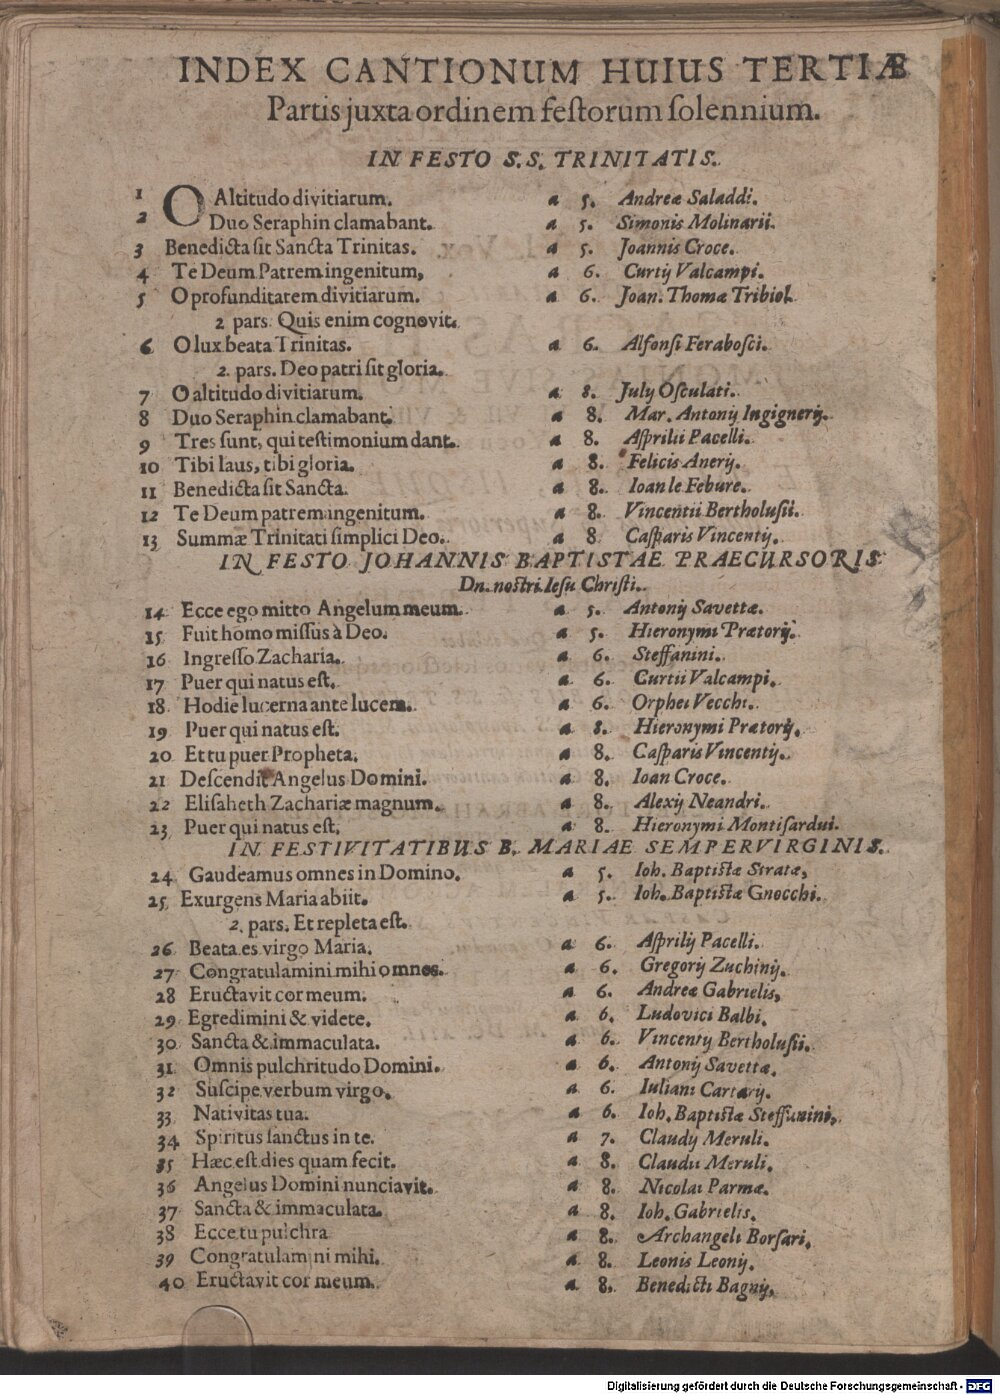 INDEX CANTIONUM HUIUS TERTIÆ
Partis juxta ordinem festorum solennium.
IN FESTO S.S. TRINITATIS.
1 O Altitudo divitiarum. a 5. Andreæ Saladdi.
2 Duo Seraphin clamabant. a 5. Simonis Molinarii.
3 Benedicta sit Sancta Trinitas. a 5. Joannis Croce.
4 Te Deum Patrem ingenitum, a 6. Curtij Valcampi.
5 O profunditatem divitiarum. a 6. Joan. Thomæ Tribiol.
2 pars. Quis enim cognovit.
6 O lux beata Trinitas. a 6. Alfonsi Ferabosci.
2. pars. Deo patri sit gloria.
7 O altitudo divitiarum. a 8. July Osculati.
8 Duo Seraphin clamabant. a 8. Mar. Antonij Ingignerij.
9 Tres sunt, qui testimonium dant. a 8. Asprilii Pacelli.
10 Tibi laus, tibi gloria. a 8. Felicis Anerij.
11 Benedicta sit Sancta. a 8. Ioan le Febure.
12 Te Deum patrem ingenitum. a 8. Vincentii Bertholusii.
13 Summæ Trinitati simplici Deo. a 8 Casparis Vincentij.
IN FESTO JOHANNIS BAPTISTAE PRAECURSORIS
Dn. nostri Iesu Christi.
14 Ecce ego mitto Angelum meum. a 5. Antonij Savettæ.
15 Fuit homo missus à Deo. a 5. Hieronymi Prætorij.
16 Ingresso Zacharia. a 6. Steffanini.
17 Puer qui natus est. a 6. Curtii Valcampi.
18 Hodie lucerna ante lucem. a 6. Orphei Vecchi.
19 Puer qui natus est. a 8. Hieronymi Prætorij.
20 Et tu puer Propheta. a 8. Casparis Vincentij.
21 Descendit Angelus Domini. a 8. Ioan Croce.
22 Elisaheth Zachariæ magnum. a 8. Alexij Neandri.
23 Puer qui natus est. a 8. Hieronymi Montisardui.
IN FESTIVITATIBUS B. MARIAE SEMPER VIRGINIS.
24 Gaudeamus omnes in Domino. a 5. Ioh. Baptistæ Stratæ,
25 Exurgens Maria abiit. a 5. Ioh. Baptistæ Gnocchi.
2. pars. Et repleta est.
26 Beata es virgo Maria. a 6. Asprilij Pacelli.
27 Congratulamini mihi omnes. a 6. Gregorij Zuchinij.
28 Eructavit cor meum. a 6. Andreæ Gabrielis,
29 Egredimini & videte. a 6. Ludovici Balbi.
30 Sancta & immaculata. a 6. Vincenty Bertholusii.
31 Omnis pulchritudo Domini. a 6. Antonij Savettæ.
32 Suscipe verbum virgo. a 6. Iuliani Cartarij.
33 Nativitas tua. a 6. Ioh. Baptistæ Steffanini,
34 Spiritus sanctus in te. a 7. Claudij Meruli.
35 Hæc est dies quam fecit. a 8. Claudii Meruli.
36 Angelus Domini nunciavit. a 8. Nicolai Parmæ.
37 Sancta & immaculata. a 8. Ioh. Gabrielis.
38 Ecce tu pulchra a 8. Archangeli Borsari,
39 Congratulamini mihi. a 8. Leonis Leonij.
40 Eructavit cor meum. a 8. Benedicti Bagnij,
Digitalisierung gefördert durch die Deutsche Forschungsgemeinschaft - DFG